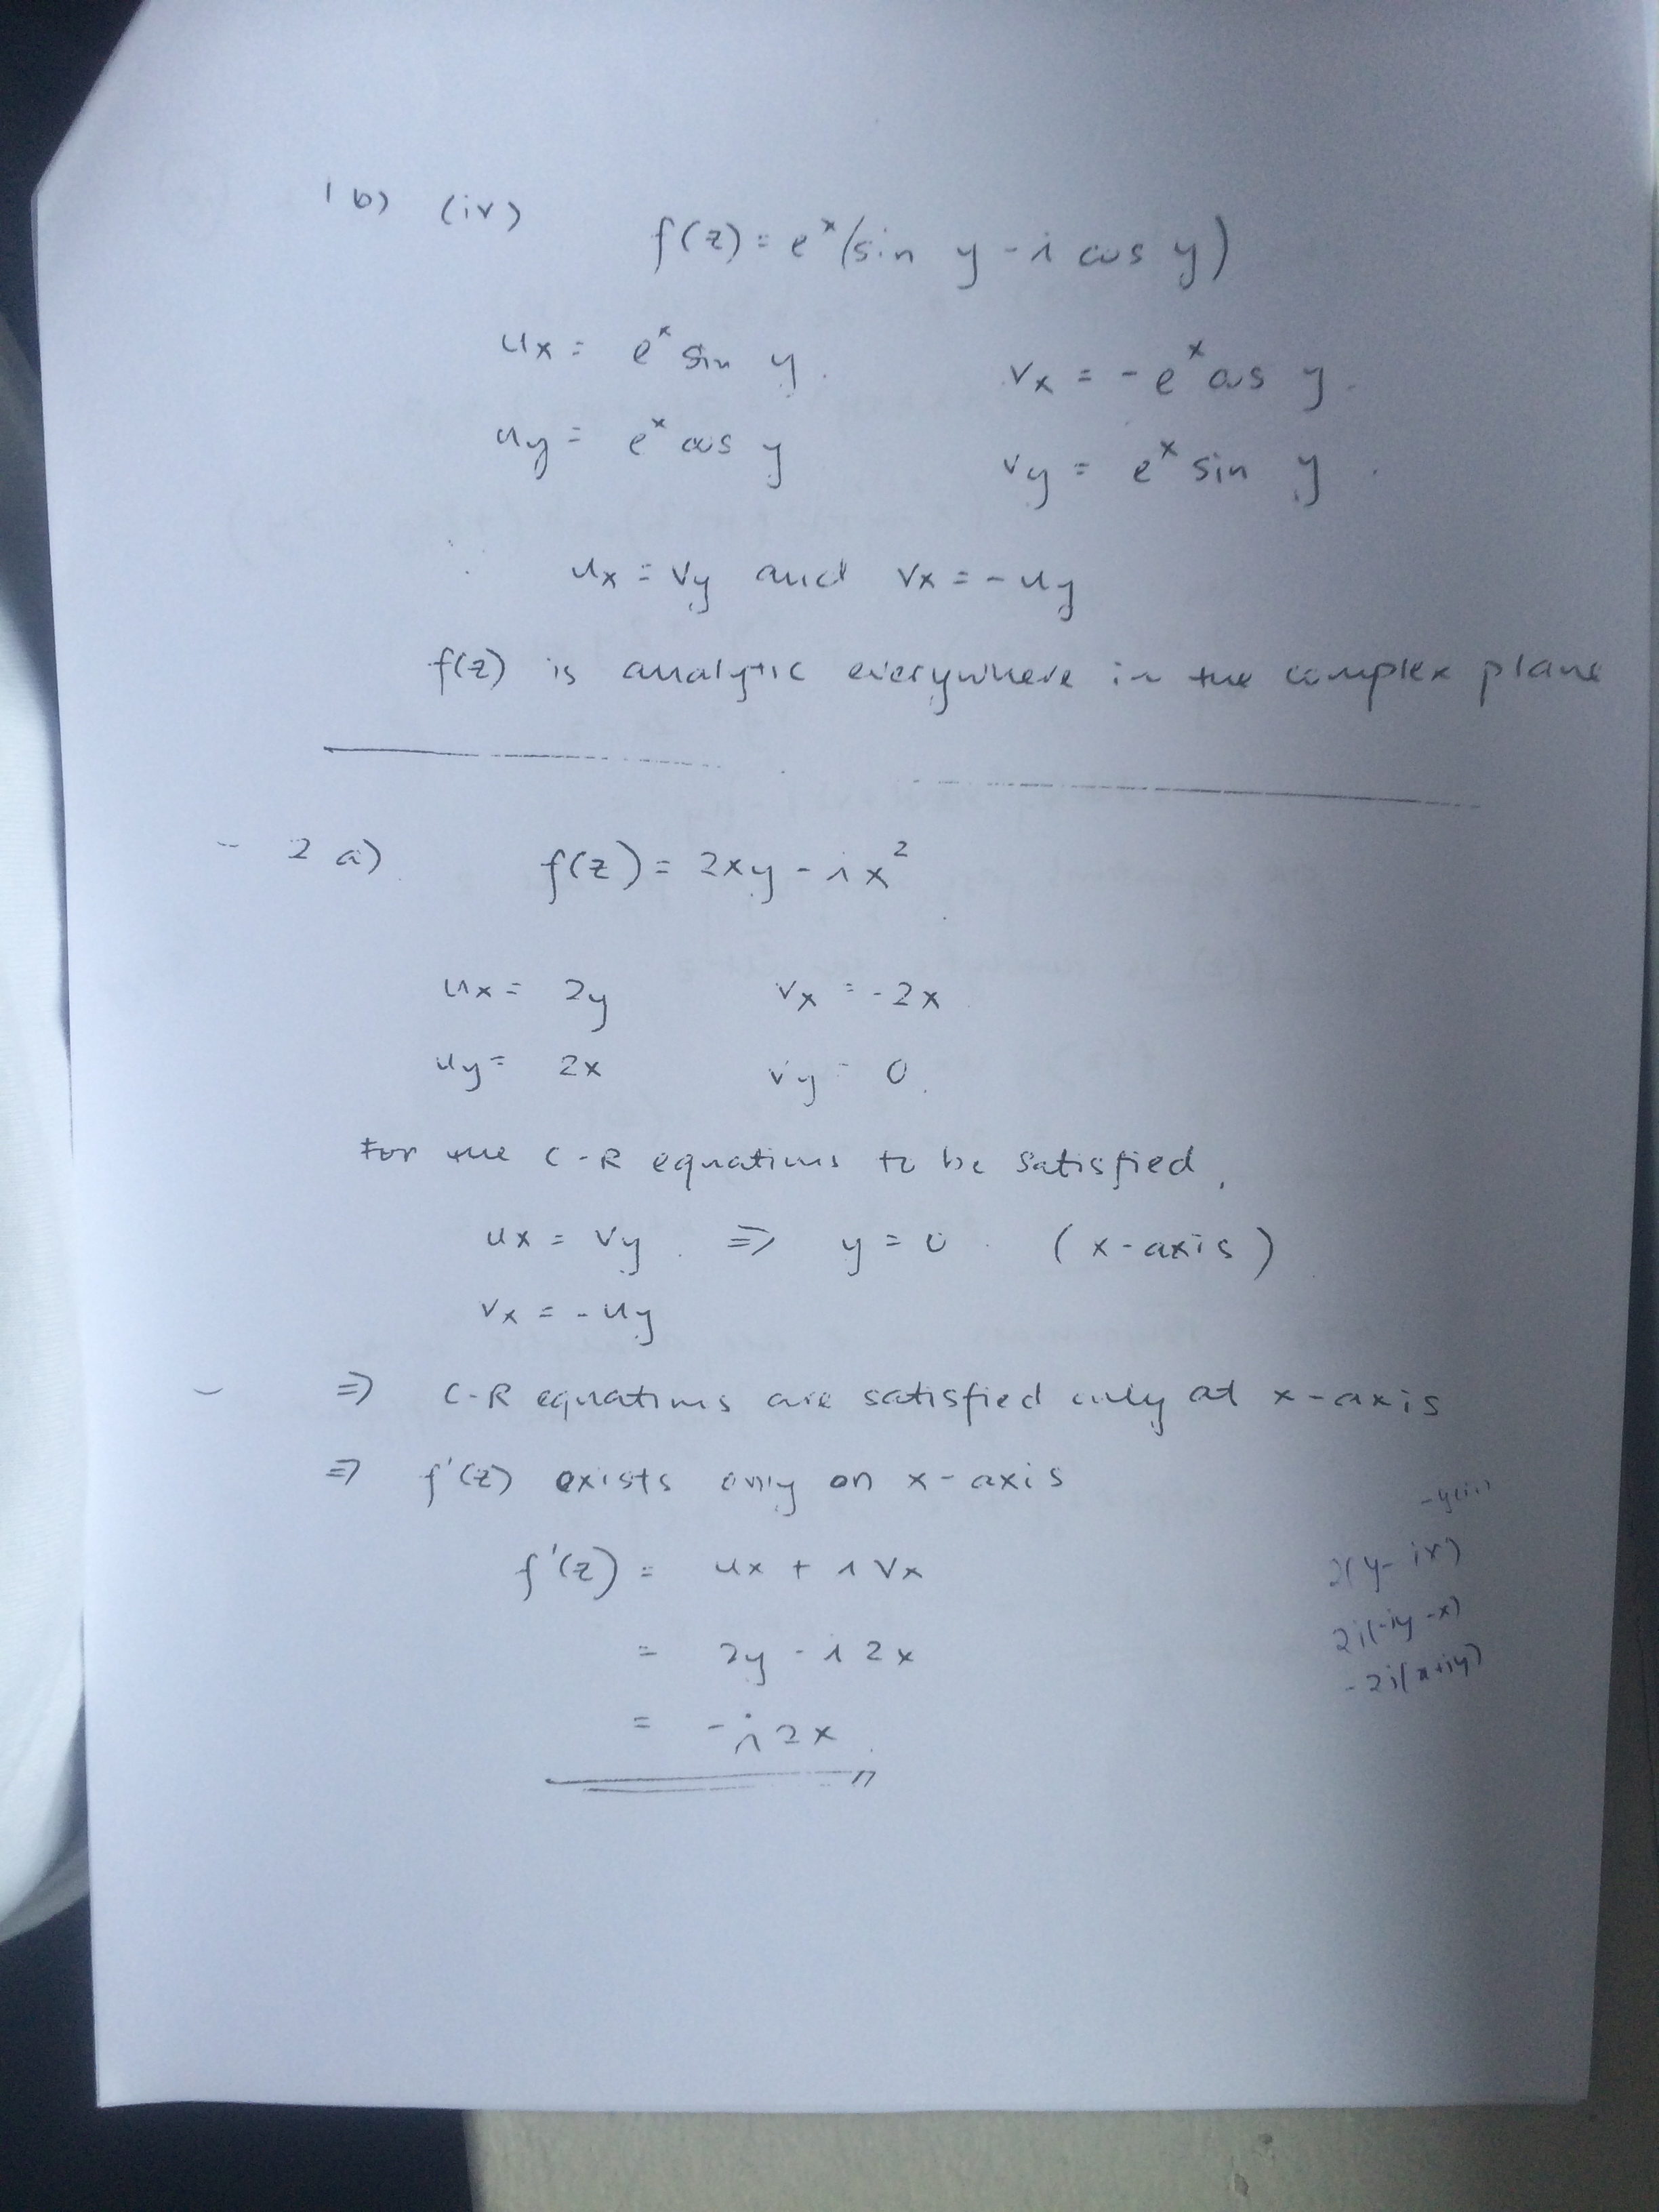 1 b) (iv) f(z) = e^x (sin y - i cos y)
ux = e^x sin y. vx = - e^x cos y.
uy = e^x cos y vy = e^x sin y.
∴ ux = vy and vx = - uy
f(z) is analytic everywhere in the complex plane
- 2 a) f(z) = 2xy - i x^2
ux = 2y vx = -2x
uy = 2x vy = 0.
For the C-R equations to be satisfied,
ux = vy. => y = 0. (x-axis)
vx = - uy
=> C-R equations are satisfied only at x-axis
=> f'(z) exists only on x-axis
f'(z) = ux + i vx
= 2y - i 2x
= - i 2x
2(y - ix)
2i(-iy - x)
-2i(x+iy)